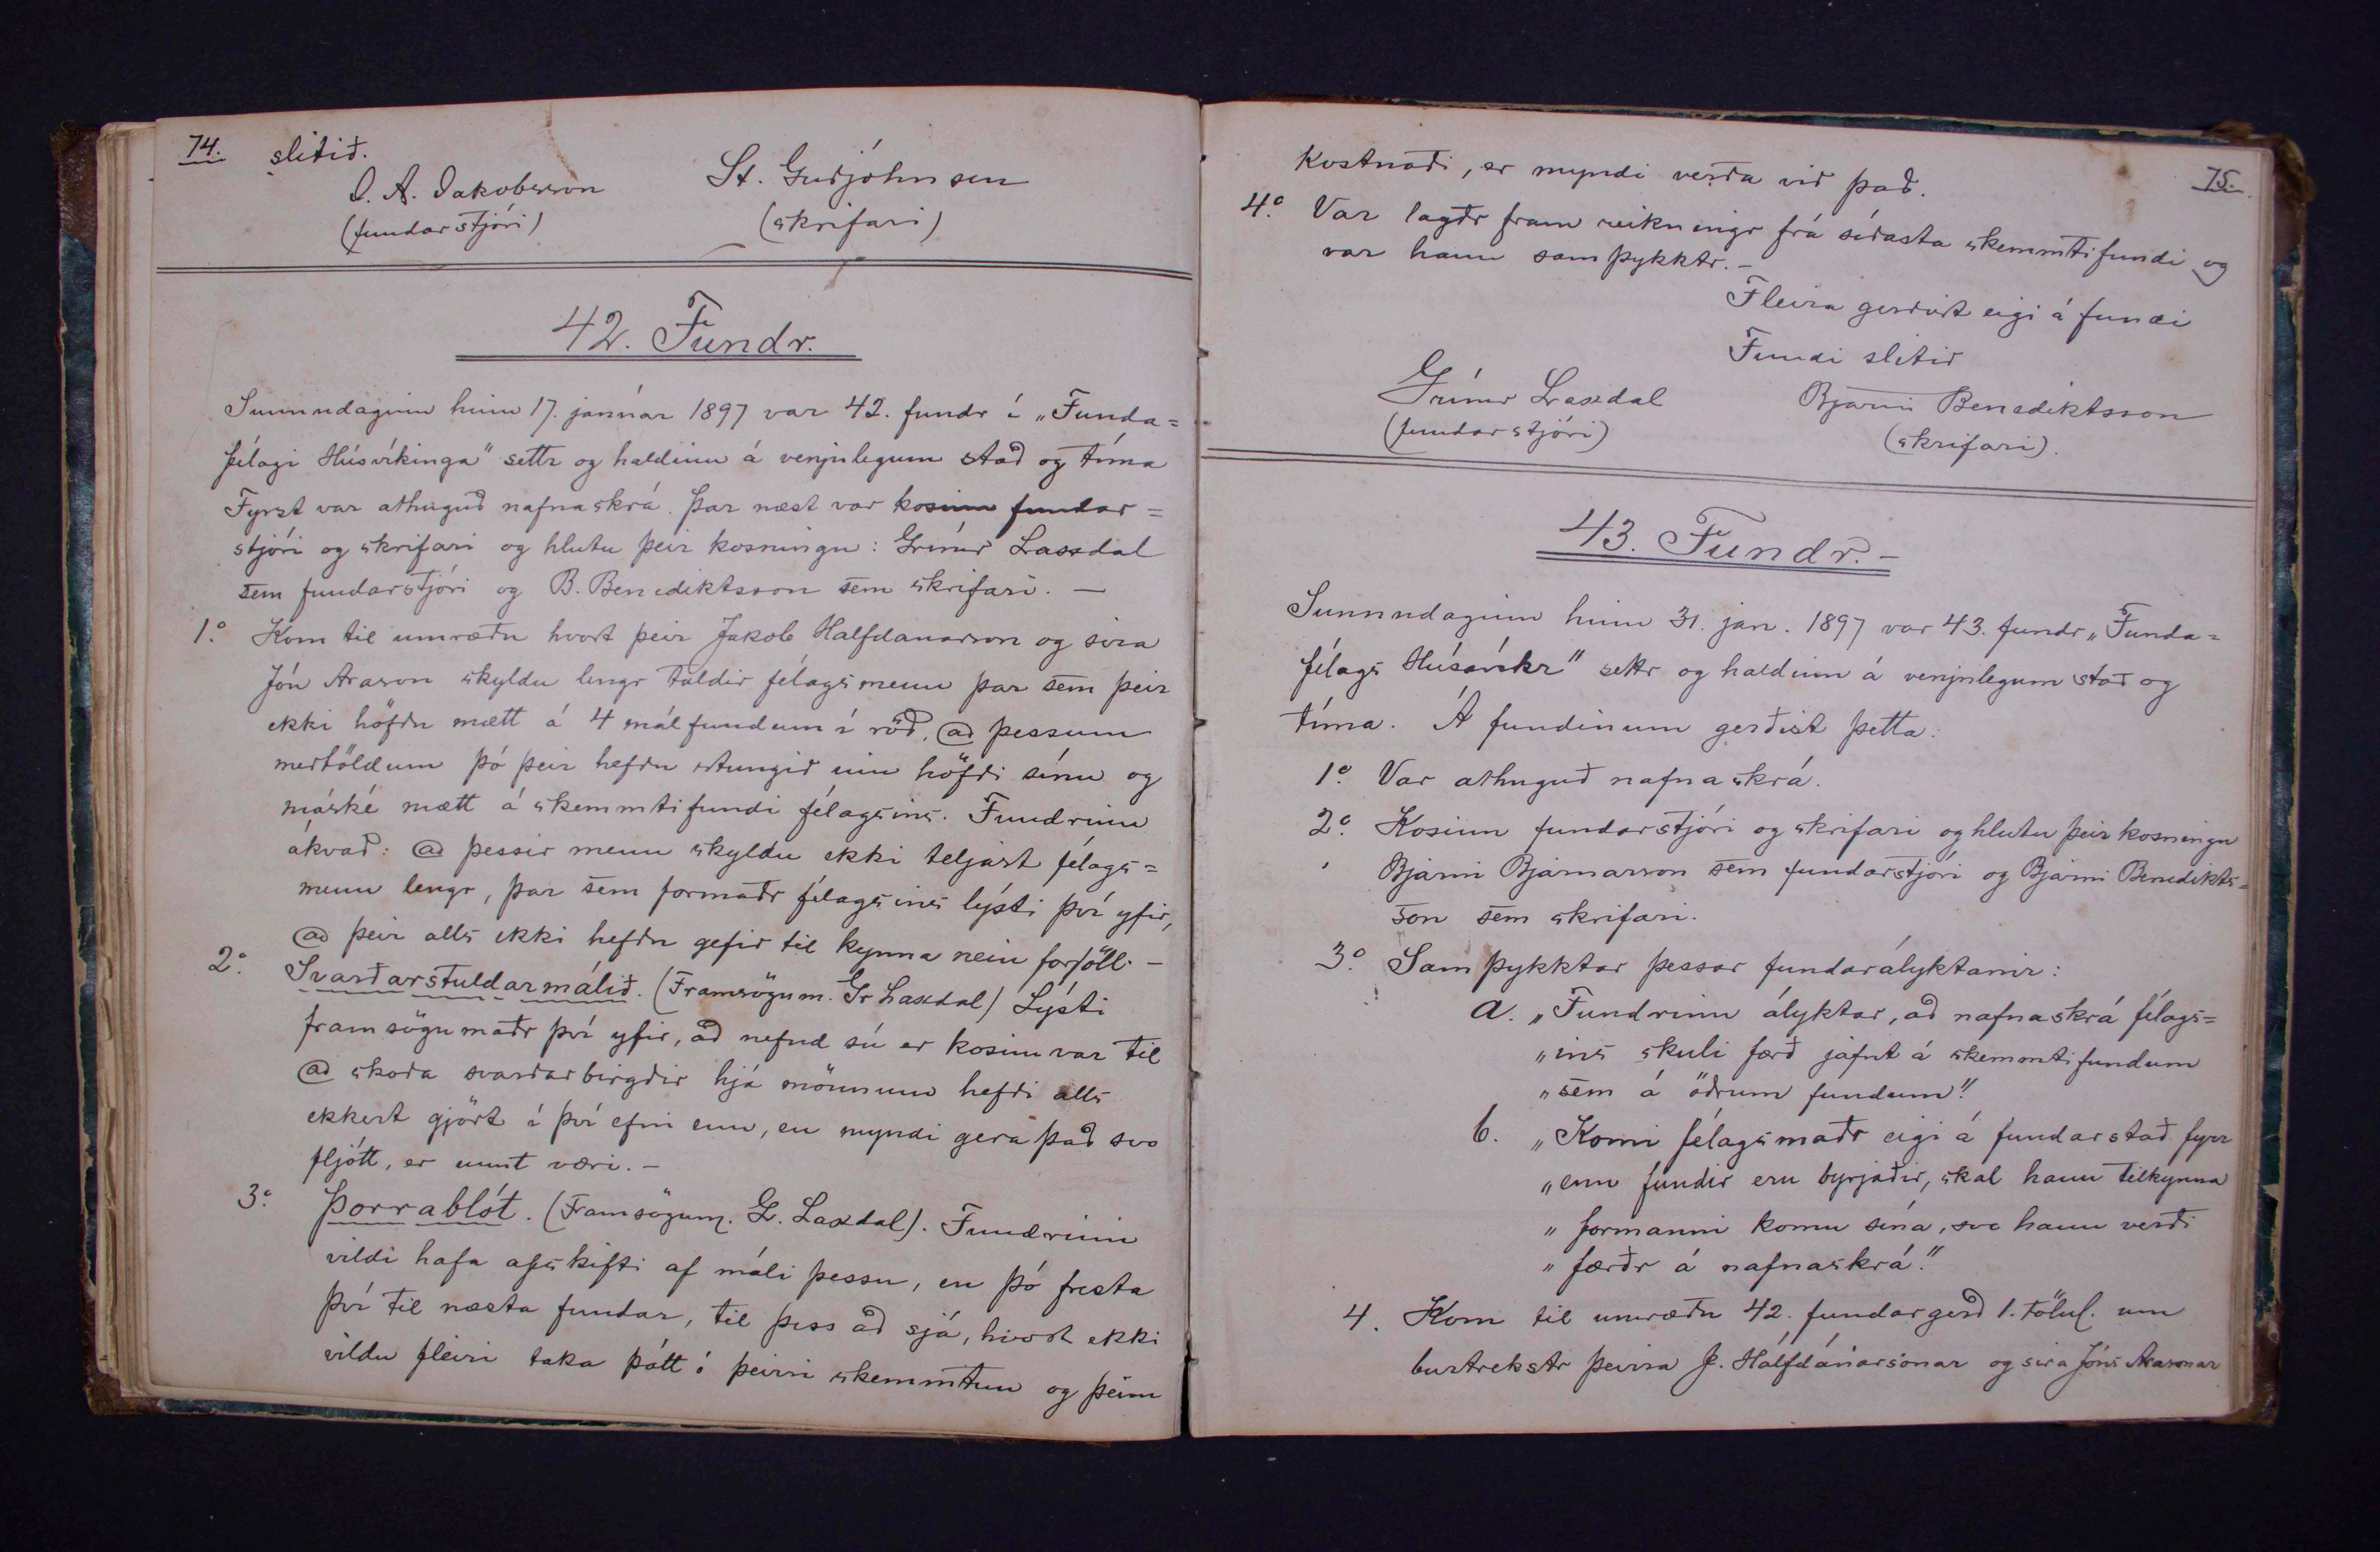 74. slitið.
J. A. Jakobsson St. Guðjohnsen
(fundarstjóri) (skrifari)
42. Fundr.
Sunnudaginn hinn 17. janúar 1897 var 42. fundr í „Funda=
félagi Húsvíkinga" settr og haldinn á venjulegum stað og tíma
Fyrst var athuguð nafnaskrá. Þar næst var kosinn fundar=
stjóri og skrifari og hlutu þeir kosningu: Grímur Laxdal
sem fundarstjóri og B. Benediktsson sem skrifari. —
1.° Kom til umræðu hvort þeir Jakob Halfdanarson og síra
Jón Arason skyldu lengr taldir félagsmenn þar sem þeir
ekki höfðu mætt á 4 málfundum í röð, að þessum
meðtöldum þó þeir hefðu stungið inn höfði sínu og
máské mætt á skemmtifundi félagsins. Fundrinn
ákvað: að þessir menn skyldu ekki teljast félags=
menn lengr, þar sem formaðr félagsins lýsti því yfir,
að þeir alls ekki hefðu gefið til kynna nein forföll. —
2.° Svarðarstuldarmálið. (Framsögum. Gr Laxdal) Lýsti
framsögumaðr því yfir, að nefnd sú er kosin var til
að skoða svarðarbirgðir hjá mönnum hefði alls
ekkert gjört í því efni enn, en myndi gera það svo
fljótt, er unnt væri. —
3.° Þorrablót. (Framsögum. G. Laxdal). Fundrinn
vildi hafa afskifti af máli þessu, en þó fresta
því til næsta fundar, til þess að sjá, hvort ekki
vildu fleiri taka þátt í þeirri skemmtun og þeim
75.
kostnaði, er myndi verða við það.
4.° Var lagðr fram reikningr frá síðasta skemmtifundi og
var hann samþykktr. —
Fleira gerðist eigi á fundi
Fundi slitið
Grímur Laxdal Bjarni Benediktsson
(fundarstjóri) (skrifari).
43. Fundr. —
Sunnudaginn hinn 31. jan. 1897 var 43. fundr „Funda=
félags Húsavíkr" settr og haldinn á venjulegum stað og
tíma. Á fundinum gerðist þetta:
1.° Var athuguð nafnaskrá.
2.° Kosinn fundarstjóri og skrifari og hlutu þeir kosningu
Bjarni Bjarnarson sem fundarstjóri og Bjarni Benedikts=
son sem skrifari.
3.° Samþykktar þessar fundarályktanir:
a. „Fundrinn ályktar, að nafnaskrá félags=
„ins skuli færð jafnt á skemmtifundum
„sem á öðrum fundum".
b. „Komi félagsmaðr eigi á fundarstað fyrr
„enn fundir eru byrjaðir, skal hann tilkynna
„formanni komu sína, svo hann verði
„færðr á nafnaskrá."
4. Kom til umræðu 42. fundargerð 1. tölul. um
burtrekstr þeirra J. Hálfdánarsonar og síra Jóns Arasonar